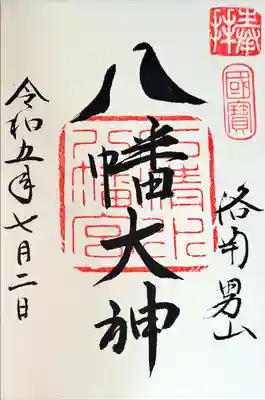 奉拝
國寶
洛南男山
八幡大神
石清水八幡宮
令和五年七月二日